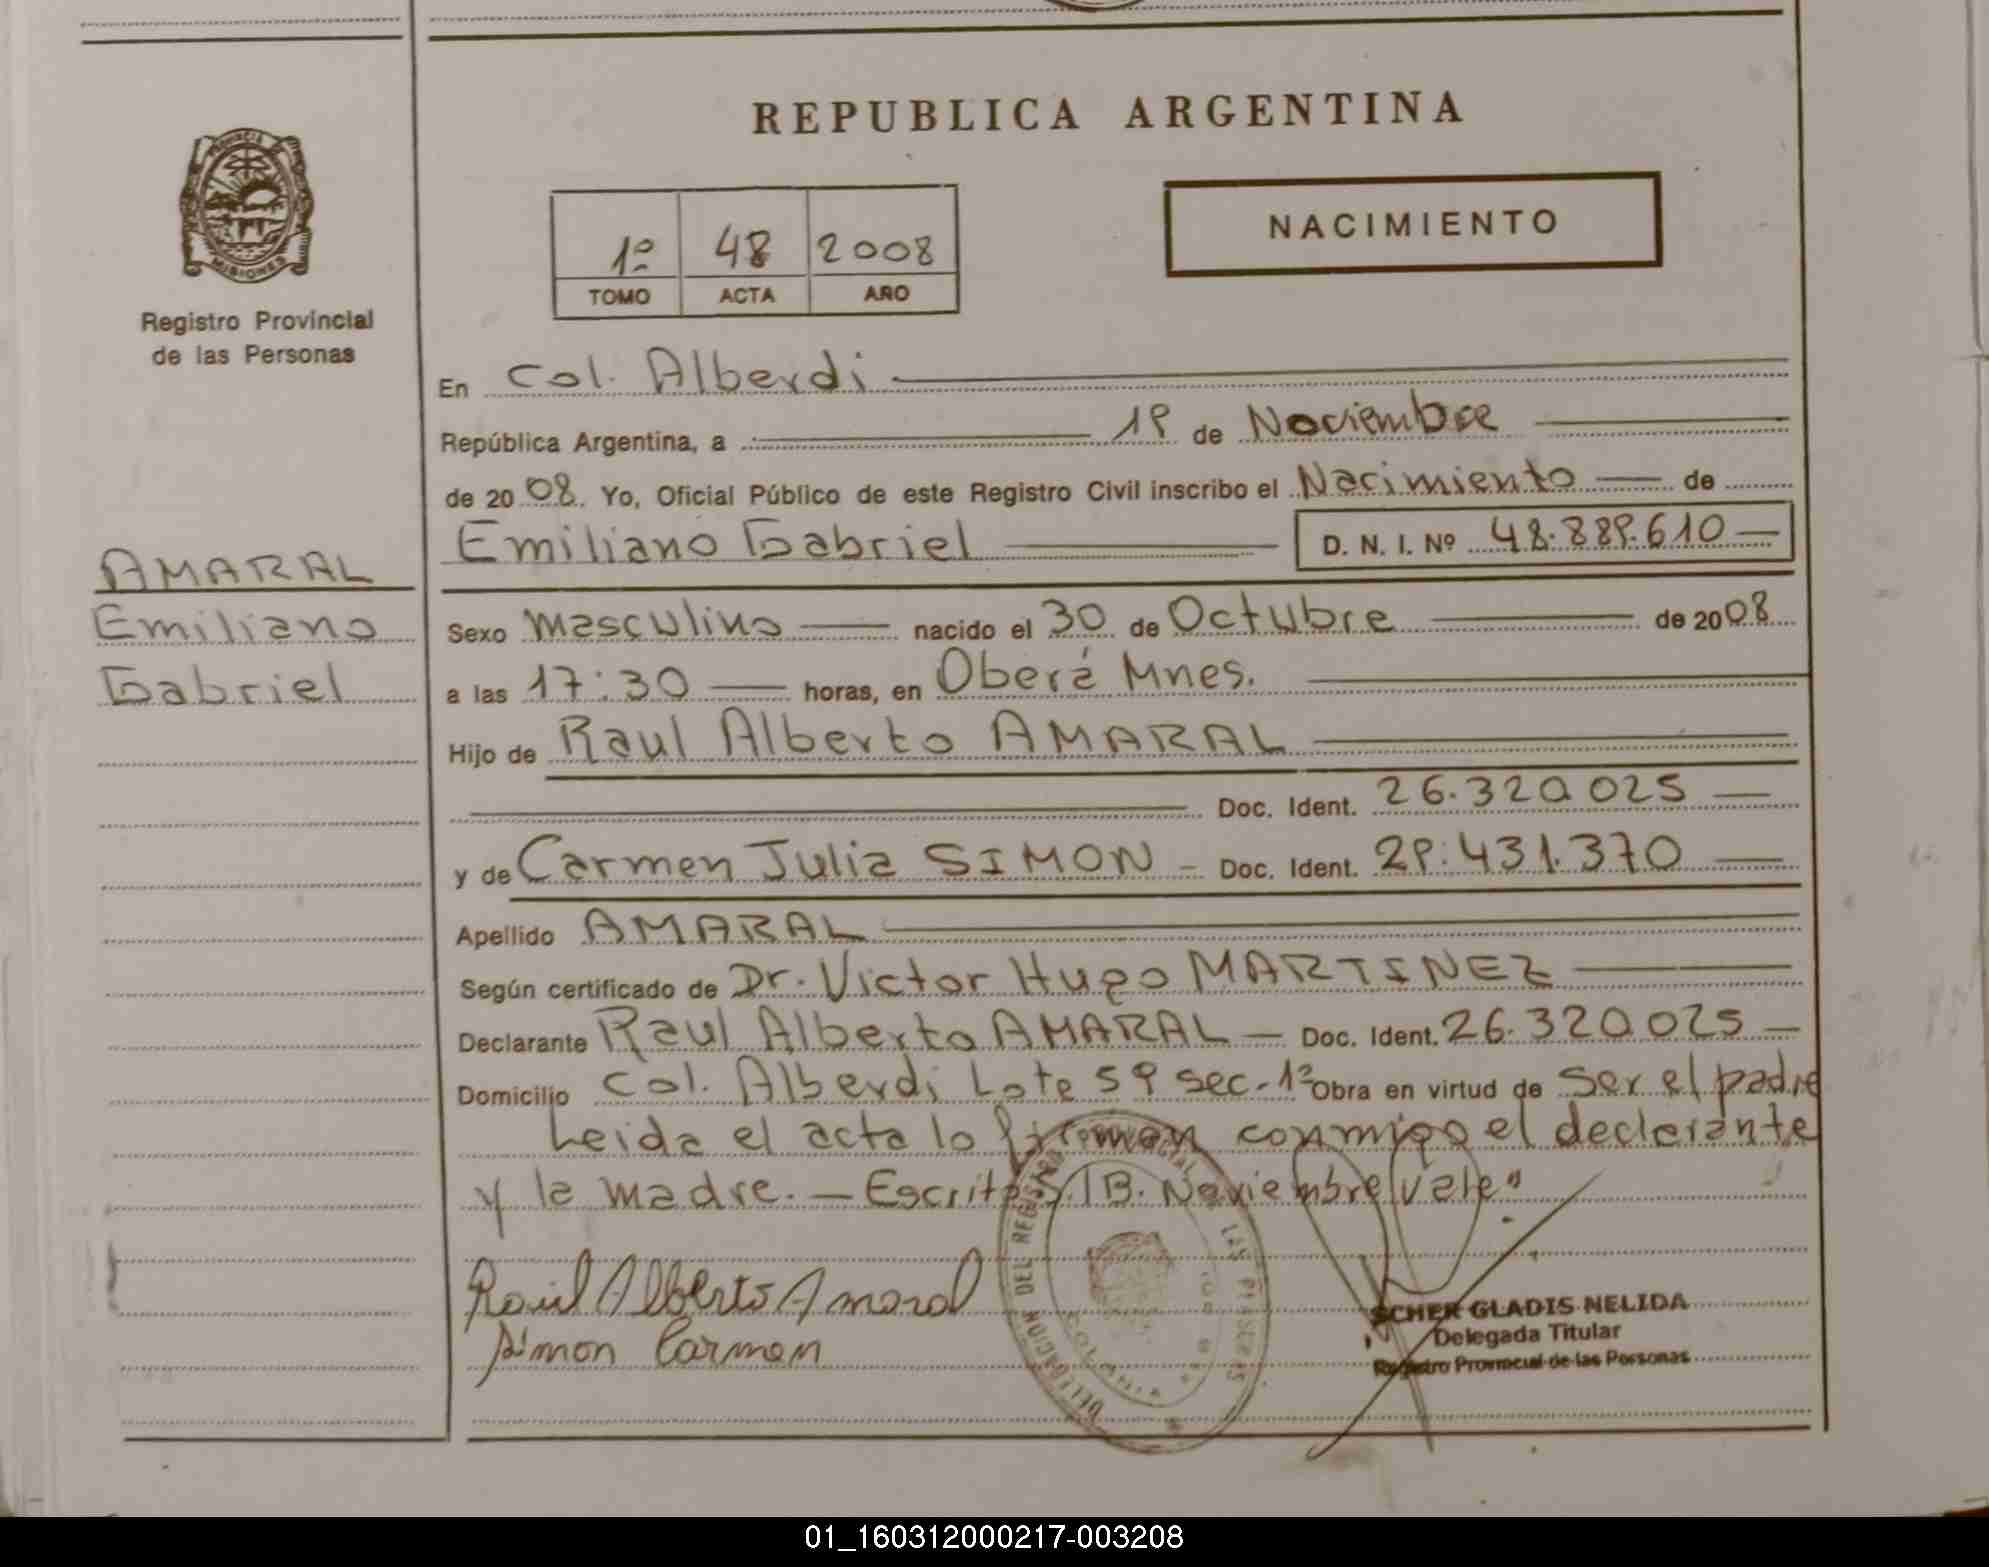 REPUBLICA ARGENTINA
PROVINCIA
MISIONES
Registro Provincial
de las Personas
1º 48 2008
TOMO ACTA AÑO
NACIMIENTO
En Col. Alberdi
República Argentina, a 19 de Noviembre
de 2008. Yo, Oficial Público de este Registro Civil inscribo el Nacimiento de
Emiliano Gabriel D. N. I. Nº 48.889.610
AMARAL
Emiliano
Gabriel
Sexo masculino nacido el 30 de Octubre de 2008
a las 17:30 horas, en Oberá Mnes.
Hijo de Raul Alberto AMARAL
Doc. Ident. 26.320.025
y de Carmen Julia SIMON - Doc. Ident. 29.431.370
Apellido AMARAL
Según certificado de Dr. Victor Hugo MARTINEZ
Declarante Raul Alberto AMARAL - Doc. Ident. 26.320.025
Domicilio Col. Alberdi Lote 59 sec. 1ª Obra en virtud de ser el padre
Leida el acta lo firman conmigo el declarante
y la madre. - Escrito s/B. Noviembre vale"
Raúl Alberto Amaral
Simon Carmen
DELEGACION DEL REGISTRO PROVINCIAL DE LAS PERSONAS
COLONIA
SCHER GLADIS NELIDA
Delegada Titular
Registro Provincial de las Personas
01_160312000217-003208